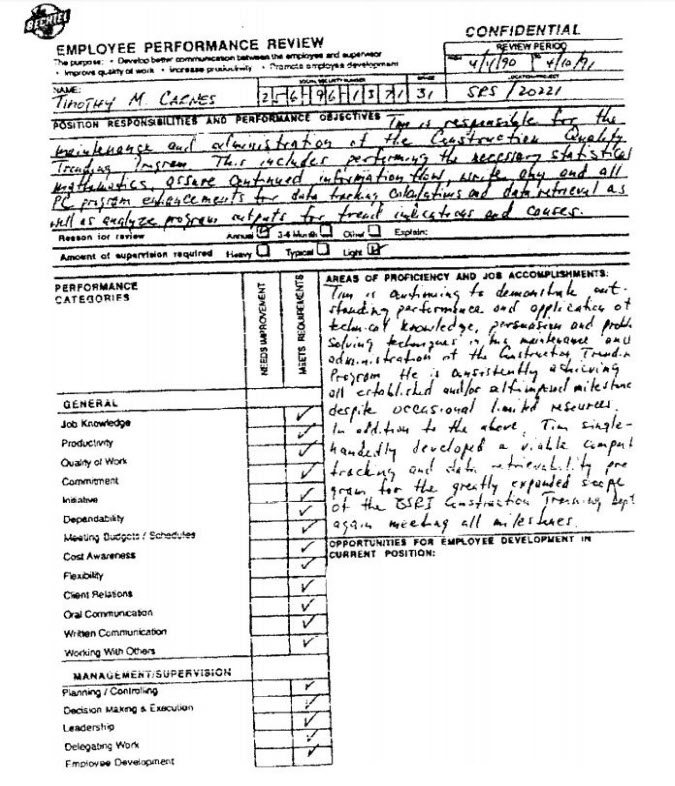 BECHTEL
CONFIDENTIAL
EMPLOYEE PERFORMANCE REVIEW
REVIEW PERIOD
The purpose: • Develop better communication between the employee and supervisor
• Improve quality of work • Increase productivity • Promote employee development
4/4/90 TO 4/10/91
NAME: SOCIAL SECURITY NUMBER GRADE LOCATION/PROJECT
TIMOTHY M. CARNES 256-96-1371 31 SRS / 20221
POSITION RESPONSIBILITIES AND PERFORMANCE OBJECTIVES Tim is responsible for the
maintenance and administration of the Construction Quality
Trending Program. This includes performing the necessary statistical
mathematics, assure continued information flow, write any and all
PC program enhancements for data tracking calculations and data retrieval as
well as analyze program outputs for trend indications and causes.
Reason for review Annual 3-6 Month Other Explain:
Amount of supervision required Heavy Typical Light
PERFORMANCE
CATEGORIES
NEEDS IMPROVEMENT
MEETS REQUIREMENTS
GENERAL
Job Knowledge
Productivity
Quality of Work
Commitment
Initiative
Dependability
Meeting Budgets / Schedules
Cost Awareness
Flexibility
Client Relations
Oral Communication
Written Communication
Working With Others
MANAGEMENT/SUPERVISION
Planning / Controlling
Decision Making & Execution
Leadership
Delegating Work
Employee Development
AREAS OF PROFICIENCY AND JOB ACCOMPLISHMENTS:
Tim is continuing to demonstrate out-
standing performance and application of
technical knowledge, persuasion and probl
solving techniques in his maintenance and
administration of the Construction Trendin
Program He is consistently achieving
all established and/or self imposed milestone
despite occasional limited resources.
In addition to the above, Tim single-
handedly developed a viable comput
tracking and data retrievability pro
gram for the greatly expanded scope
of the BSRI Construction Training Dept
again meeting all milestones.
OPPORTUNITIES FOR EMPLOYEE DEVELOPMENT IN
CURRENT POSITION: